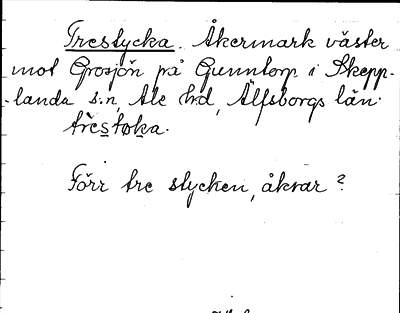 Trestycka. Åkermark väster
mot Grosjön på Gunntorp i Skepp-
-landa s:n, Ale hd, Älfsborgs län.
trĕstoka.
Förr tre stycken, åkrar?